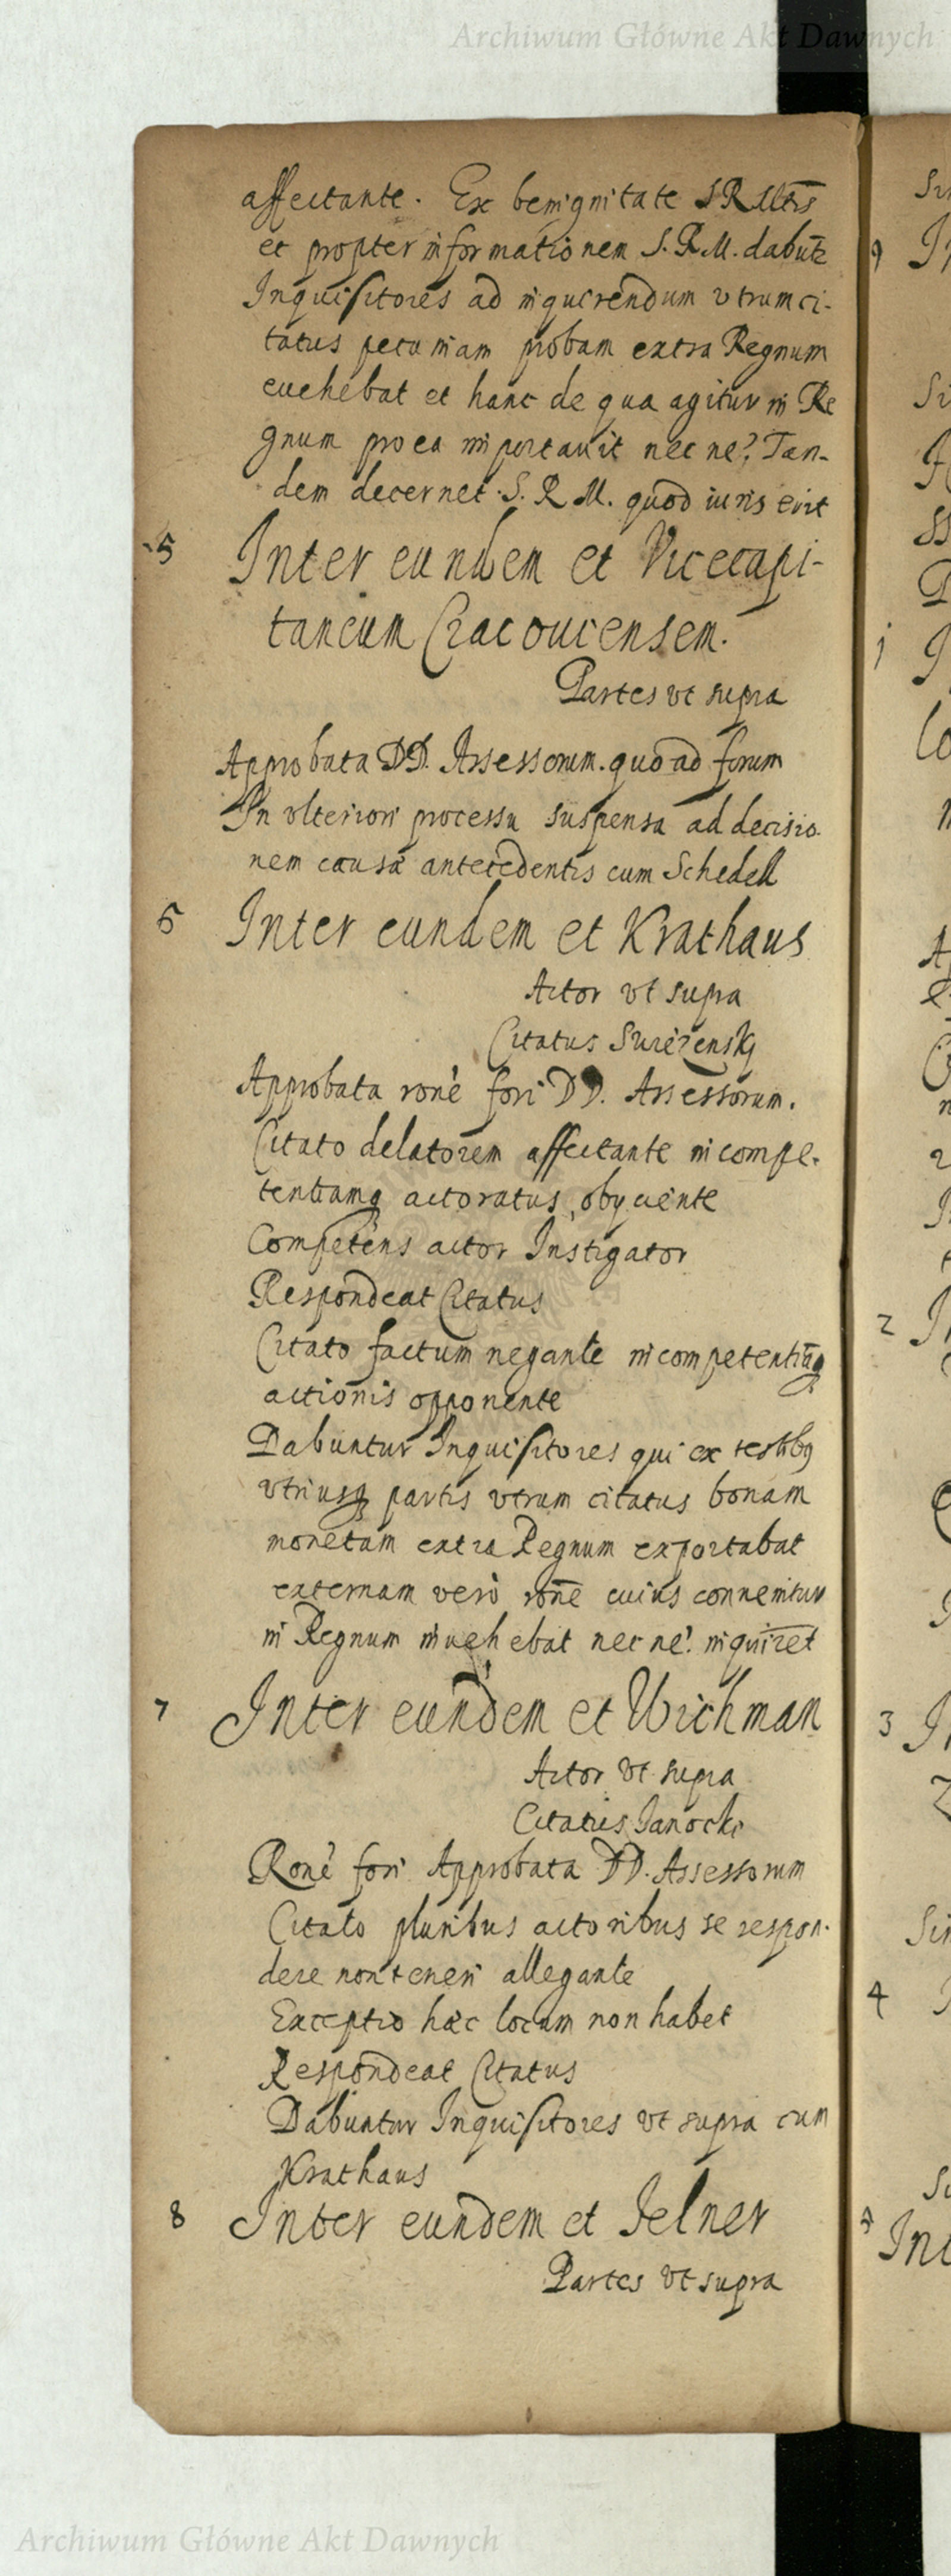 Archiwum Główne Akt Dawnych
affectante. Ex benignitate S R Mtis
et propter informationem S. R. M. dabutr
Inquisitores ad inquirendum vtrum ci-
tatus pecuniam probam extra Regnum
euehebat et hanc de qua agitur in Re
gnum pro ea importauit nec ne? Tan-
dem decernet S. R M. quod iuris erit
5 Inter eundem et Vicecapi-
taneum Cracouiensem.
Partes vt supra
Approbata DD. Assessorum quo ad forum
In vlteriori processu suspensa ad decisio
nem causa antecedentis cum Schedell
6 Inter eundem et Krathaus
Actor vt supra
Citatus
Approbata rone fori DD. Assessorum.
Citato delatorem affectante incompe-
tentiamq actoratus obijciente
Competens actor Instigator
Respondeat Citatus
Citato factum negante incompetentiaq
actionis opponente
Dabuntur Inquisitores qui ex testibq
vtriusq partis vtrum citatus bonam
monetam extra Regnum exportabat
externam vero rone cuius conuenitur
in Regnum inuehebat nec ne? inquiret
7 Inter eundem et Wichman
Actor vt supra
Citatus Janocki
Rone fori Approbata DD. Assessorum
Citato pluribus actoribus se respon-
dere non teneri allegante
Exceptio hæc locum non habet
Respondeat Citatus
Dabuntur Inquisitores vt supra cum
Krathaus
8 Inter eundem et Jelner
Partes vt supra
Archiwum Główne Akt Dawnych